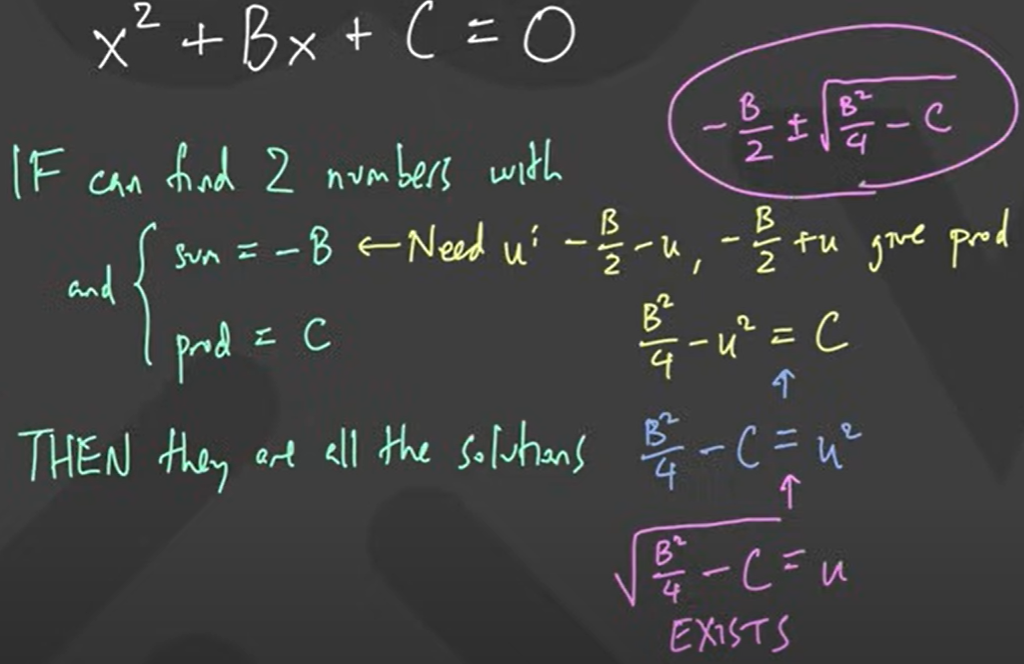 x² + Bx + C = 0
-B/2 ± √(B²/4 - C)
IF can find 2 numbers with
and { sum = -B ← Need u: -B/2 - u, -B/2 + u give prod
prod = C
B²/4 - u² = C
↑
THEN they are all the solutions
B²/4 - C = u²
↑
√(B²/4 - C) = u
EXISTS